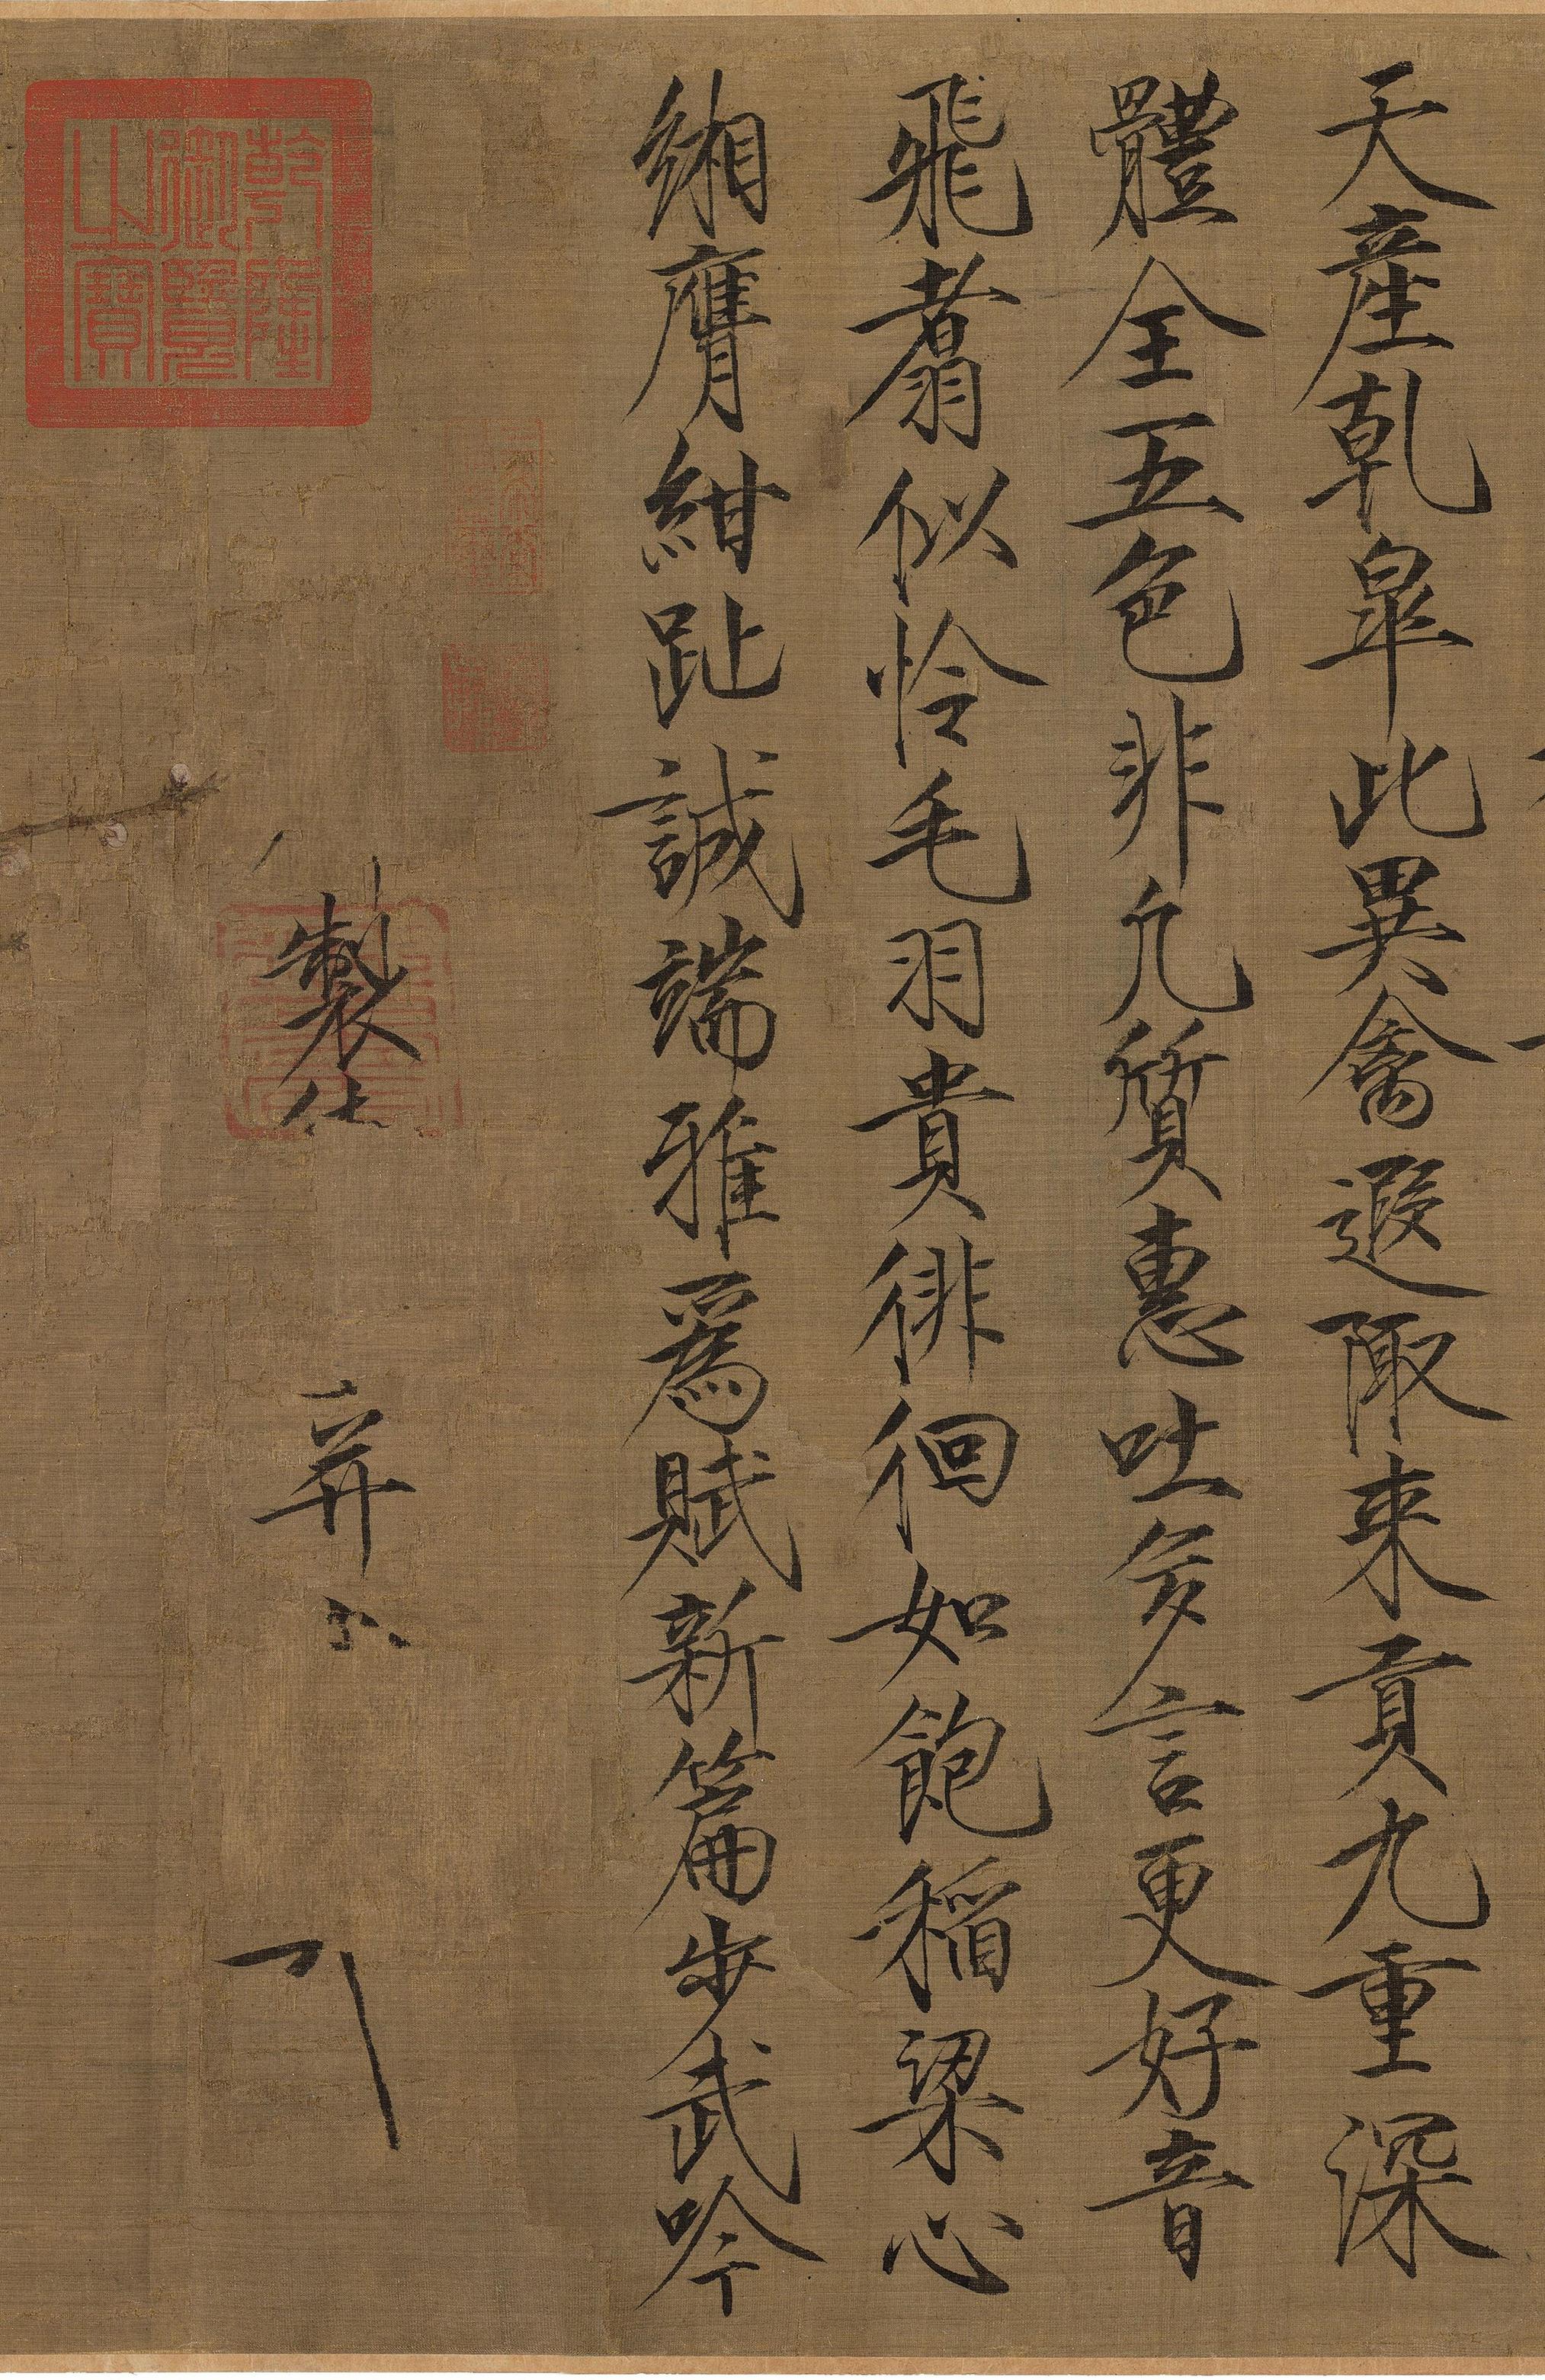 天產乾皐此異禽遐陬来貢九重深
體全五色非凡質惠吐多言更好音
飛翥似怜毛羽貴徘徊如飽稻粱心
緗膺紺趾誠端雅爲賦新篇步武吟
製
乾隆
御覽
之寶